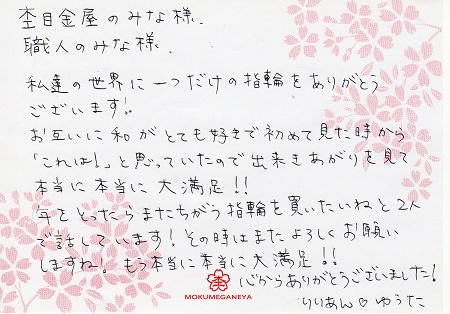 杢目金屋のみな様、
職人のみな様、
私達の世界に一つだけの指輪をありがとう
ございます!!
お互いに和がとても好きで初めて見た時から
「これは!」と思っていたので出来きあがりを見て
本当に本当に大満足!!
年をとったらまたちがう指輪を買いたいねと2人
で話しています!その時はまたよろしくお願い
しますね!もう本当に本当に大満足!!
心からありがとうございました!
りりあん♡ゆうた
杢
MOKUMEGANEYA